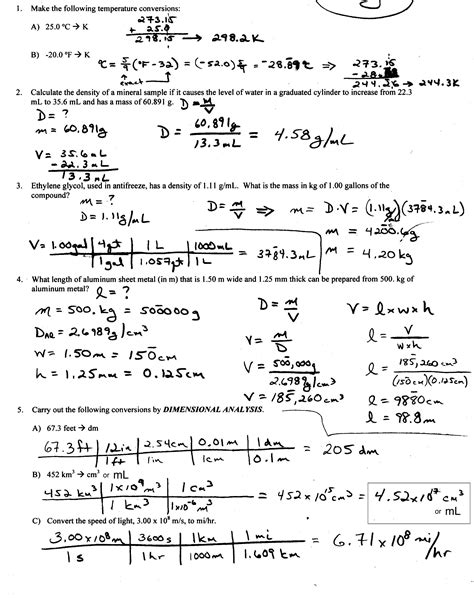 1. Make the following temperature conversions:
A) 25.0 °C → K
273.15
+ 25.0
298.15 → 298.2K
B) -20.0 °F → K
°C = 5/9 (°F - 32) = (-52.0) 5/9 = -28.89 °C ⇒ 273.15
exact
244.26 → 244.3K
2. Calculate the density of a mineral sample if it causes the level of water in a graduated cylinder to increase from 22.3
mL to 35.6 mL and has a mass of 60.891 g. D = M/V
D = ?
m = 60.891g
D = 60.891g / 13.3mL = 4.58 g/mL
V = 35.6mL
- 22.3mL
13.3mL
3. Ethylene glycol, used in antifreeze, has a density of 1.11 g/mL. What is the mass in kg of 1.00 gallons of the
compound?
m = ?
D = 1.11g/mL
D = M/V ⇒ m = D·V = (1.11g)(3784.3mL)
m = 4200.6g
V = 1.00gal | 4qt | 1L | 1000mL = 3784.3mL
1gal | 1.057qt | 1L
m = 4.20 kg
4. What length of aluminum sheet metal (in m) that is 1.50 m wide and 1.25 mm thick can be prepared from 500. kg of
aluminum metal? l = ?
m = 500. kg = 500000g
D = m/V
V = l x w x h
DAl = 2.6989g/cm³
V = m/D
l = V / w x h
W = 1.50m = 150cm
V = 500,000g / 2.6989g/cm³
l = 185,260cm³ / (150cm)(0.125cm)
h = 1.25mm = 0.125cm
V = 185,260cm³
l = 9880cm
l = 98.8m
5. Carry out the following conversions by DIMENSIONAL ANALYSIS.
A) 67.3 feet → dm
67.3ft | 12in | 2.54cm | 0.01m | 1dm = 205 dm
1ft | 1in | 1cm | 0.1m
B) 452 km³ → cm³ or mL
452 km³ | 1x10⁹ m³ | 1 cm³ = 452x10¹⁵cm³ = 4.52x10¹⁷ cm³
1 km³ | 1x10⁻⁶ m³
or mL
C) Convert the speed of light, 3.00 x 10⁸ m/s, to mi/hr.
3.00x10⁸m | 3600s | 1km | 1mi = 6.71x10⁸ mi/hr
1s | 1hr | 1000m | 1.609km